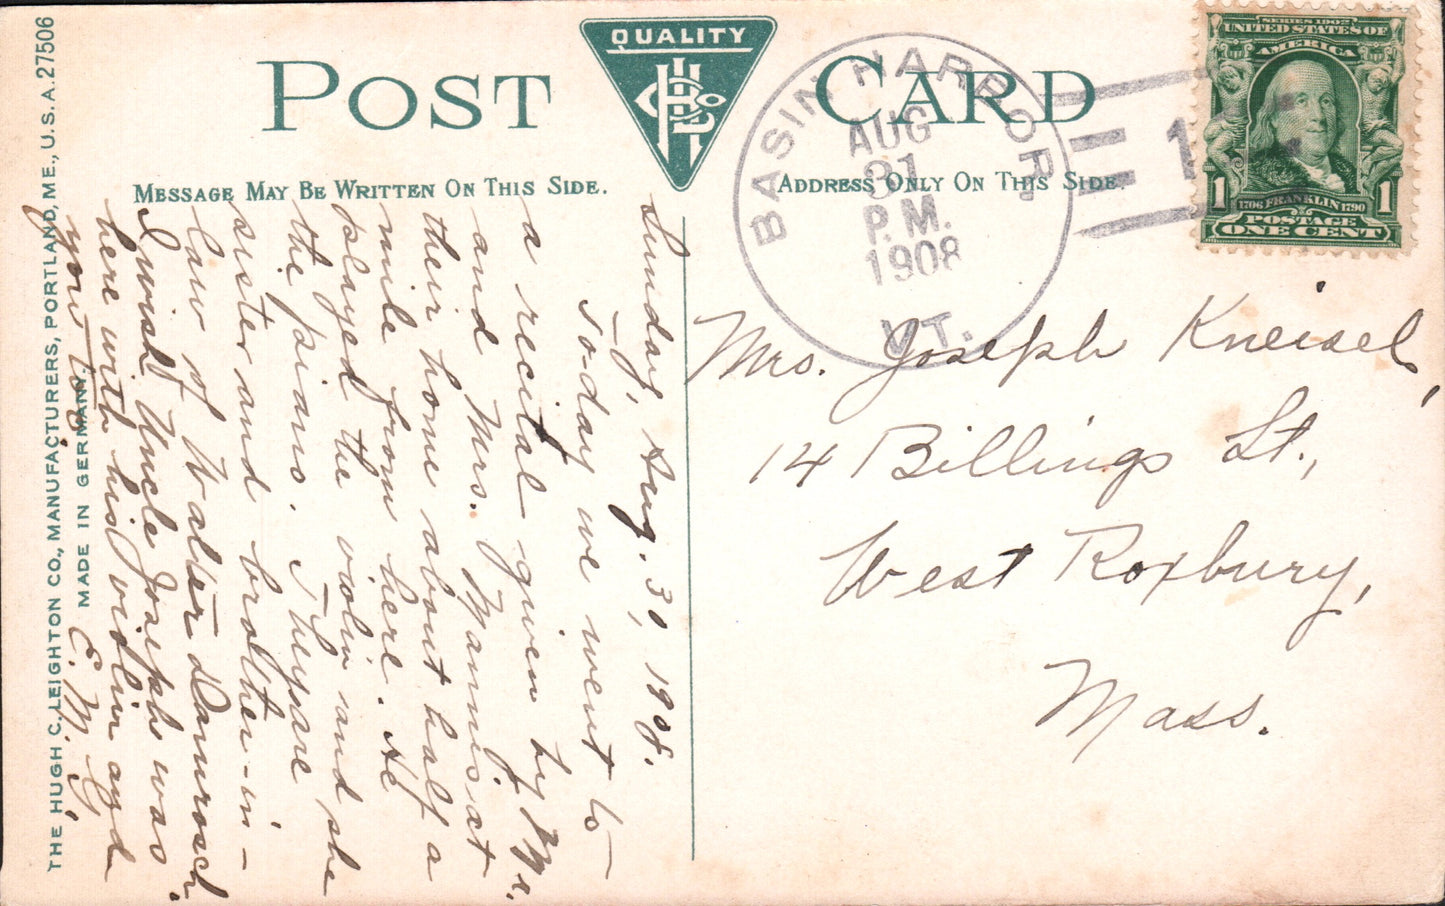 POST CARD
QUALITY
H C L Co
MESSAGE MAY BE WRITTEN ON THIS SIDE.
ADDRESS ONLY ON THIS SIDE.
BASIN HARBOR.
AUG
31
P.M.
1908
VT.
1
SERIES 1902
UNITED STATES OF
AMERICA
1706 FRANKLIN 1790
1 1
POSTAGE
ONE CENT
Sunday, Aug. 30, 1908.
To-day we went to
a recital given by Mr.
and Mrs. Mannis at
their home about half a
mile from here. He
played the violin and she
the piano. They are
sister and brother-in-
law of Walter Damrosch.
I wish Uncle Joseph was
here with his violin and
you too.
E. M. G.
Mrs. Joseph Kneisel,
14 Billings St.,
West Roxbury,
Mass.
THE HUGH C. LEIGHTON CO., MANUFACTURERS, PORTLAND, ME., U.S.A. 27506
MADE IN GERMANY.